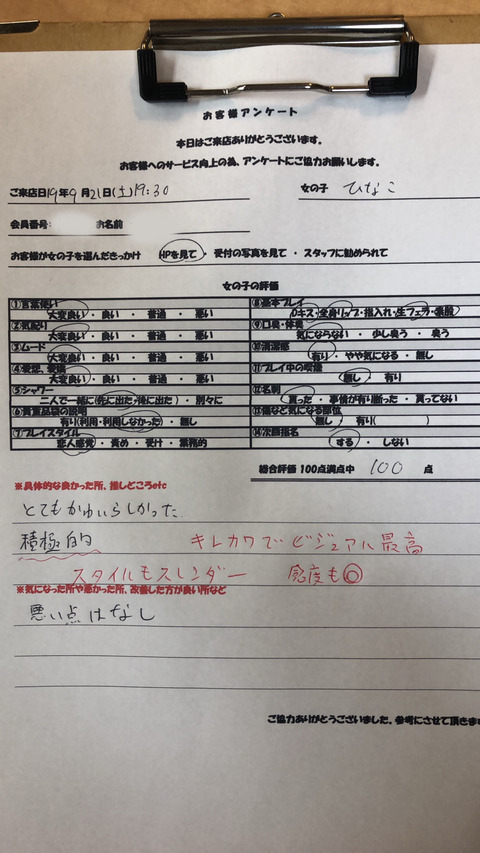 お客様アンケート
本日はご来店ありがとうございます。
お客様へのサービス向上の為、アンケートにご協力お願いします。
ご来店日19年9月21日(土)19:30 女の子 ひなこ
会員番号: お名前
お客様が女の子を選んだきっかけ HPを見て ・ 受付の写真を見て ・ スタッフに勧められて
女の子の評価
①言葉使い ⑧基本プレイ
大変良い ・ 良い ・ 普通 ・ 悪い Dキス・全身リップ・指入れ・生フェラ・素股
②気配り ⑨口臭・体臭
大変良い ・ 良い ・ 普通 ・ 悪い 気にならない ・ 少し臭う ・ 臭う
③ムード ⑩清潔感
大変良い ・ 良い ・ 普通 ・ 悪い 有り ・ やや気になる ・ 無し
⑪プレイ中の喫煙
大変良い ・ 良い ・ 普通 ・ 悪い 無し ・ 有り
⑤シャワー ⑫名刺
二人で一緒に(先に出た・後に出た) ・ 別々に 貰った ・ 事情が有り断った ・ 貰ってない
⑥貴重品袋の説明
有り(利用・利用しなかった) ・ 無し 無し ・ 有り( )
⑦プレイスタイル ⑭次回指名
恋人感覚 ・ 責め ・ 受け ・ 業務的 する ・ しない
総合評価 100点満点中 100 点
※具体的な良かった所、推しどころetc
とてもかわいらしかった
積極的 キレカワでビジュアル最高
スタイルもスレンダー 感度も◎
※気になった所や悪かった所、改善した方が良い所など
悪い点はなし
ご協力ありがとうございました。参考にさせて頂きます